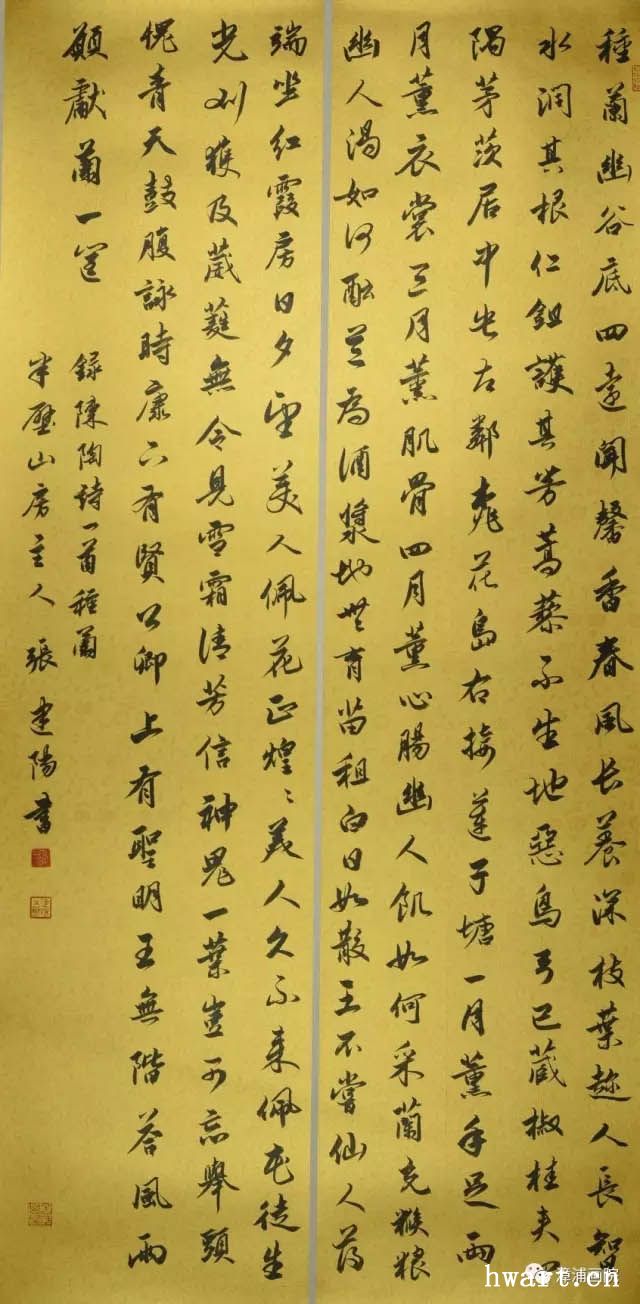 種蘭幽谷底四遠聞馨香春風長養深枝葉趁人長智
水潤其根仁鉏護其芳蒿藜不生地惡鳥弓已藏椒桂夾四
隅茅茨居中央左鄰桃花島右接蓮子塘一月薰手足兩
月薰衣裳三月薰肌骨四月薰心腸幽人飢如何采蘭充猴粮
幽人渴如何醞蘭為酒漿地無青苗租白日如散王不嘗仙人藥
端坐紅霞房日夕望美人佩花正煌々美人久不來佩花徒生
光刈獲及葳蕤無令見雪霜清芳信神鬼一葉豈可忘舉頭
愧青天鼓腹詠時康下有賢公卿上有聖明王無階答風雨
願獻蘭一筐
錄陳陶詩一首種蘭
半壁山房主人張建陽書
漳浦画院
hwart.cn